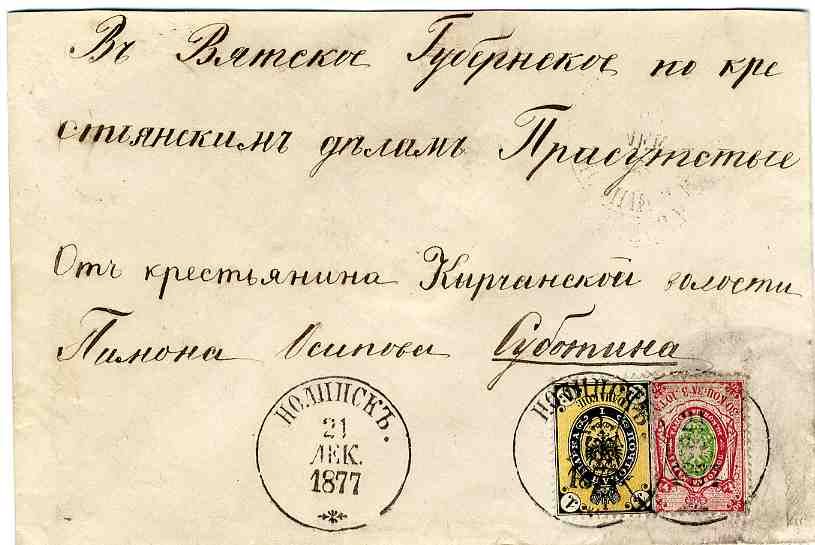 Въ Вятское Губернское по кре
стьянскимъ дѣламъ Присутствіе
Отъ крестьянина Кирчанской волости
Пимона Осипова Суботина
НОЛИНСКЪ.
21
ДЕК.
1877
НОЛИНСКЪ.